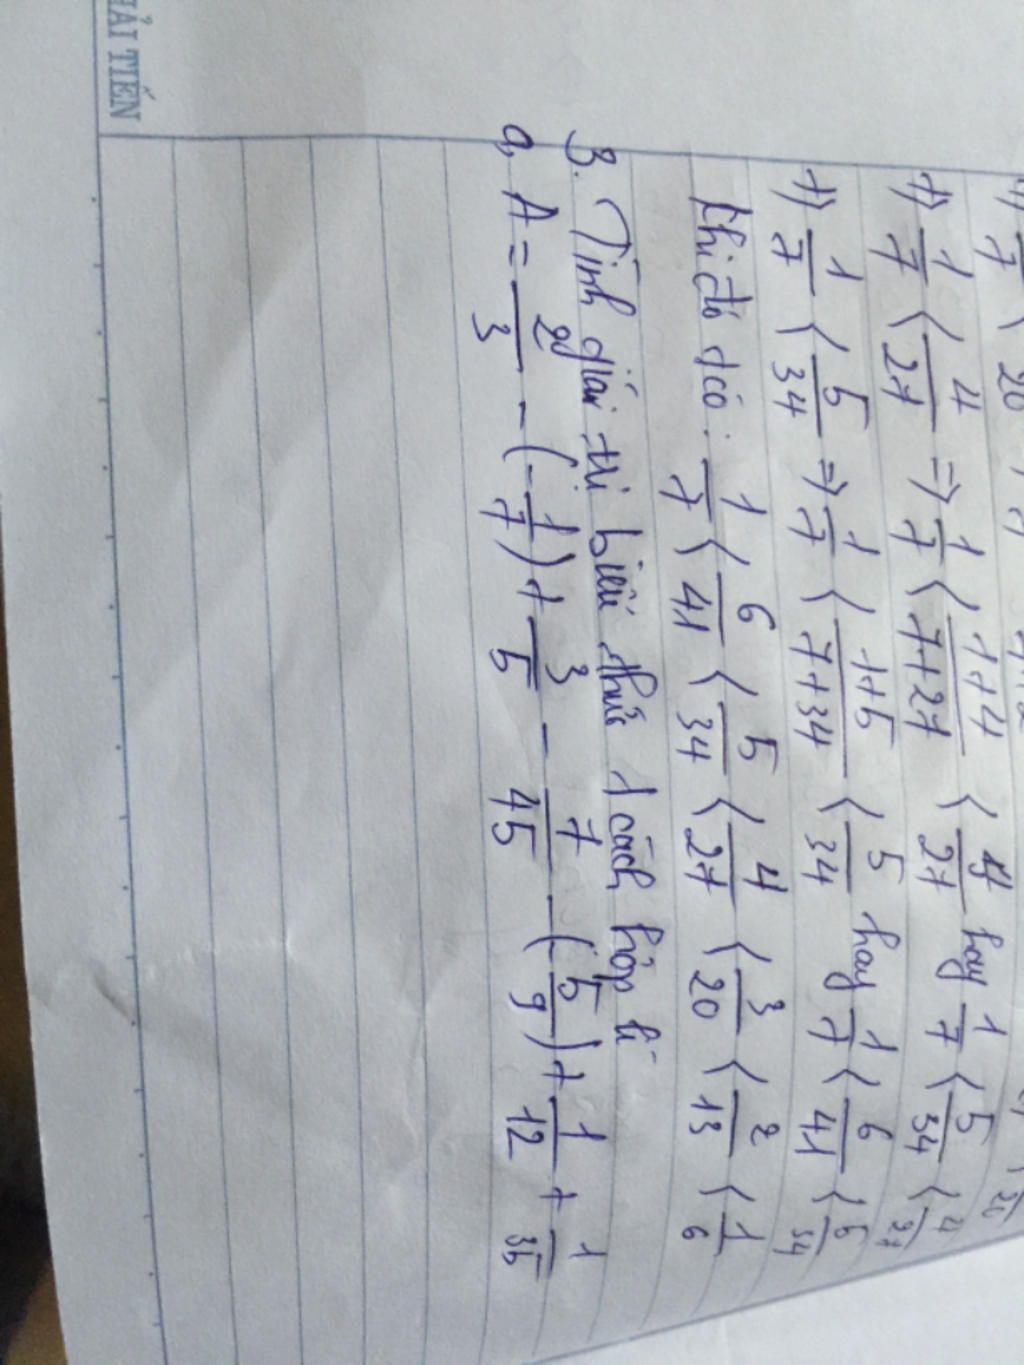 ẢI TIẾN
=> 1/7 < 4/27 => 1/7 < 1+4/7+27 < 4/27 hay 1/7 < 5/34 < 4/27
=> 1/7 < 5/34 => 1/7 < 1+5/7+34 < 5/34 hay 1/7 < 6/41 < 5/34
Khi đó có: 1/7 < 6/41 < 5/34 < 4/27 < 3/20 < 2/13 < 1/6
3. Tính giá trị biểu thức 1 cách hợp lí
a, A = 2/3 - (-1/7) + 3/5 - 7/45 - (-5/9) + 1/12 + 1/35